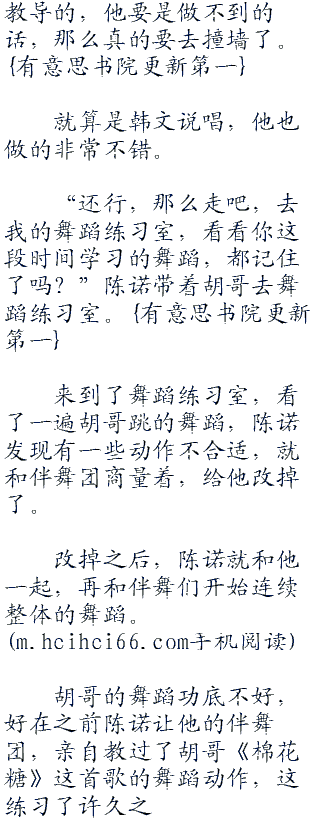 教导的，他要是做不到的
话，那么真的要去撞墙了。
{有意思书院更新第一}
就算是韩文说唱，他也
做的非常不错。
“还行，那么走吧，去
我的舞蹈练习室，看看你这
段时间学习的舞蹈，都记住
了吗？”陈诺带着胡哥去舞
蹈练习室。{有意思书院更新
第一}
来到了舞蹈练习室，看
了一遍胡哥跳的舞蹈，陈诺
发现有一些动作不合适，就
和伴舞团商量着，给他改掉
了。
改掉之后，陈诺就和他
一起，再和伴舞们开始连续
整体的舞蹈。
(m.hcihci66.com手机阅读)
胡哥的舞蹈功底不好，
好在之前陈诺让他的伴舞
团，亲自教过了胡哥《棉花
糖》这首歌的舞蹈动作，这
练习了许久之